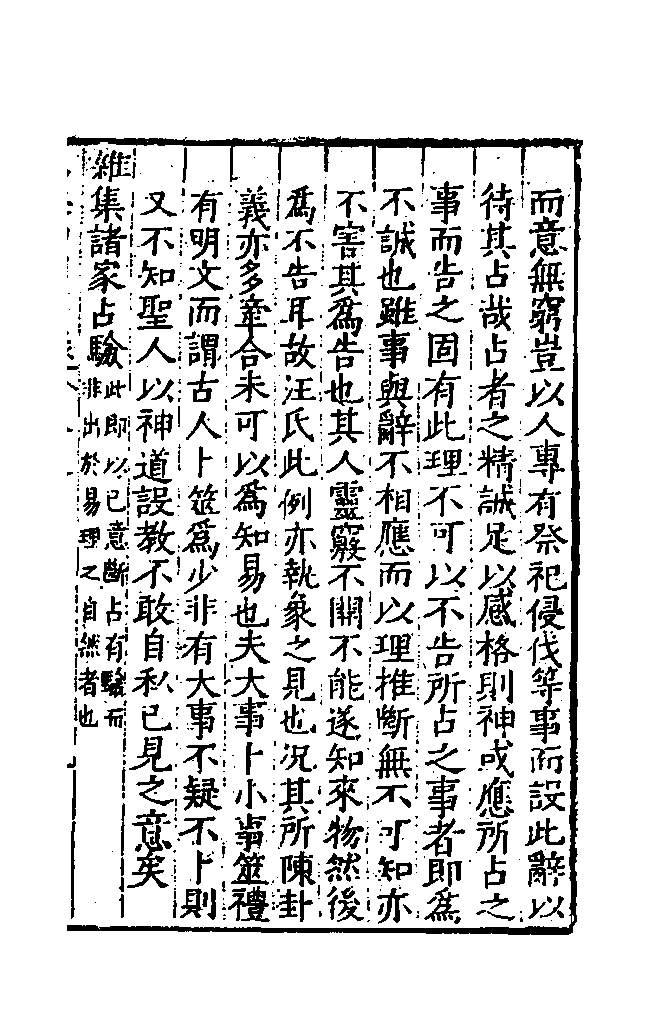 而意無窮豈以人專有祭祀侵伐等事而設此辭以
待其占哉占者之精誠足以感格則神或應所占之
事而告之固有此理不可以不告所占之事者即為
不誠也雖事與辭不相應而以理推斷無不可知亦
不害其為告也其人靈竅不開不能遂知來物然後
為不告耳故汪氏此例亦執象之見也況其所陳卦
義亦多牽合未可以為知易也夫大事卜小事筮禮
有明文而謂古人卜筮為少非有大事不疑不卜則
又不知聖人以神道設教不敢自私已見之意矣
雜集諸家占驗此即以已意斷占有驗而
非出於易理之自然者也